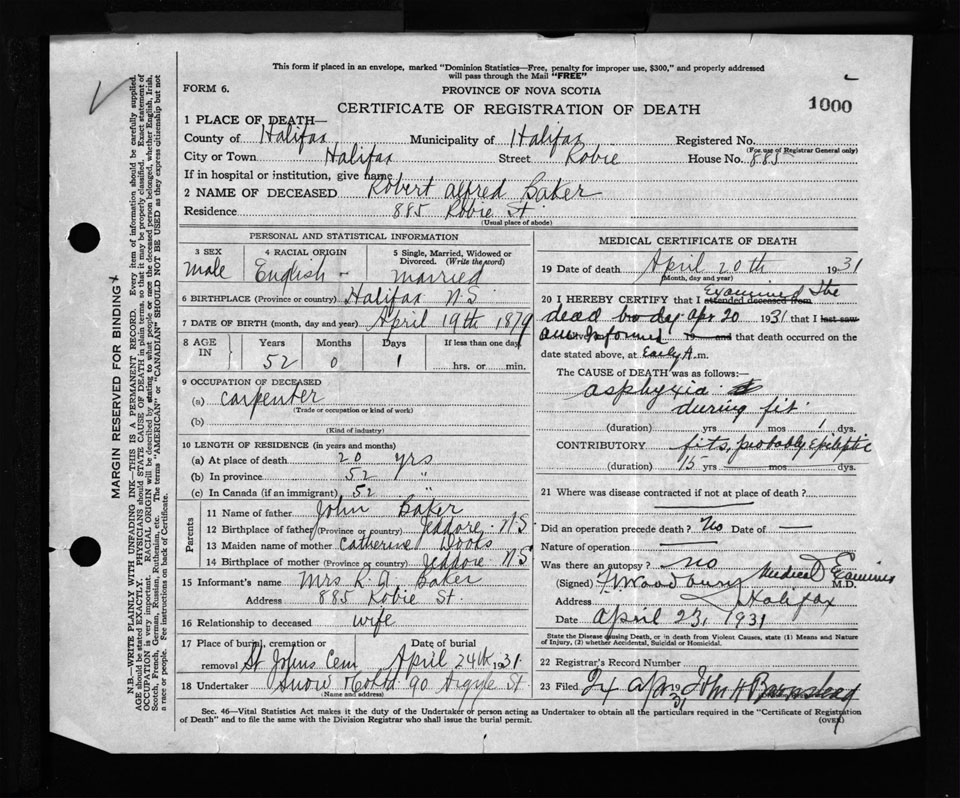 This form if placed in an envelope, marked "Dominion Statistics—Free, penalty for improper use, $300," and properly addressed
will pass through the Mail "FREE"
FORM 6.
PROVINCE OF NOVA SCOTIA
CERTIFICATE OF REGISTRATION OF DEATH
1000
1 PLACE OF DEATH—
County of Halifax Municipality of Halifax Registered No.
(For use of Registrar General only)
City or Town Halifax Street Robie House No. 885
If in hospital or institution, give name
2 NAME OF DECEASED Robert Alfred Baker
Residence 885 Robie St
(Usual place of abode)
PERSONAL AND STATISTICAL INFORMATION
3 SEX 4 RACIAL ORIGIN 5 Single, Married, Widowed or
Divorced. (Write the word)
Male English — Married
6 BIRTHPLACE (Province or country) Halifax N.S.
7 DATE OF BIRTH (month, day and year) April 19th 1879
8 AGE IN Years Months Days If less than one day
52 0 1 hrs. or min.
9 OCCUPATION OF DECEASED
(a) Carpenter
(Trade or occupation or kind of work)
(b)
(Kind of industry)
10 LENGTH OF RESIDENCE (in years and months)
(a) At place of death 20 yrs
(b) In province 52 "
(c) In Canada (if an immigrant) 52 "
Parents
11 Name of father John Baker
12 Birthplace of father (Province or country) Jeddore N.S
13 Maiden name of mother Catherine
14 Birthplace of mother (Province or country) Jeddore N.S
15 Informant's name Mrs R. A. Baker
Address 885 Robie St.
16 Relationship to deceased wife
17 Place of burial, cremation or Date of burial
removal St Johns Cem April 24th 1931
18 Undertaker Snow & Co Ltd 90 Argyle St
(Name and address)
MEDICAL CERTIFICATE OF DEATH
19 Date of death April 20th 1931
(Month, day and year)
Examined the
20 I HEREBY CERTIFY that I attended deceased from
dead body Apr 20 1931 that I last saw
am Informed alive 19 and that death occurred on the
date stated above, at Early A.m.
The CAUSE of DEATH was as follows:—
asphyxia
during fit
(duration) yrs mos 1 dys.
CONTRIBUTORY fits, probably Epileptic
(duration) 15 yrs mos dys.
21 Where was disease contracted if not at place of death?
Did an operation precede death? No Date of —
Nature of operation
Was there an autopsy? No
(Signed) Woodbury Medical Examiner M.D.
Address Halifax
Date April 23, 1931
State the Disease causing Death, or in death from Violent Causes, state (1) Means and Nature
of Injury, (2) whether Accidental, Suicidal or Homicidal.
22 Registrar's Record Number
23 Filed 24 Apr 1931 John H Barnstead
Sec. 46—Vital Statistics Act makes it the duty of the Undertaker or person acting as Undertaker to obtain all the particulars required in the "Certificate of Registration
of Death" and to file the same with the Division Registrar who shall issue the burial permit.
(OVER)
MARGIN RESERVED FOR BINDING
N.B.—WRITE PLAINLY WITH UNFADING INK—THIS IS A PERMANENT RECORD. Every item of information should be carefully supplied.
AGE should be stated EXACTLY. PHYSICIANS should STATE CAUSE OF DEATH in plain terms, so that it may be properly classified. Exact statement of
OCCUPATION is very important. RACIAL ORIGIN will be described by stating to what people or race the deceased person belonged, whether English, Irish,
Scotch, French, German, Russian, Ruthenian, etc. The terms "AMERICAN" or "CANADIAN" SHOULD NOT BE USED as they express citizenship but not
a race or people. Fee instructions on back of Certificate.